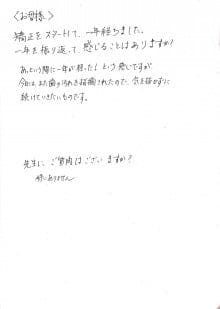 〈お母様〉
矯正をスタートして、一年経ちました。
一年を振り返って、感じることはありますか?
あっという間に一年が経った!という感じですが
今日はまだ歯の汚れを指摘されたので、気を抜かずに
続けていきたいものです。
先生に、ご質問はございますか?
特にありません